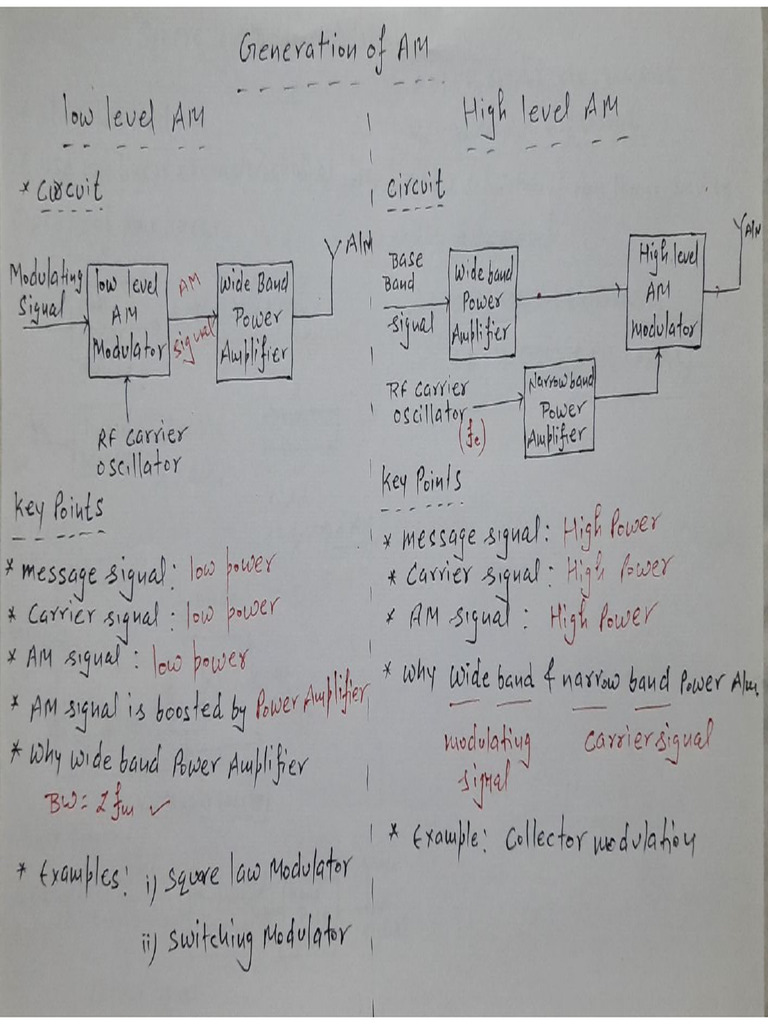 Generation of AM
low level AM
* Circuit
Modulating
Signal
low level
AM
Modulator
AM
signal
Wide Band
Power
Amplifier
RF Carrier
Oscillator
Key Points
* message signal: low power
* Carrier signal: low power
* AM signal: low power
* AM signal is boosted by Power Amplifier
* Why wide band Power Amplifier
BW = 2fm ✓
* Examples: i) Square law Modulator
ii) Switching Modulator
High level AM
Circuit
Base
Band
signal
Wide band
Power
Amplifier
High level
AM
Modulator
RF Carrier
Oscillator
(fc)
Narrowband
Power
Amplifier
Key Points
* message signal: High Power
* Carrier signal: High Power
* AM signal: High Power
* Why Wide band & narrow band Power
modulating
signal
Carrier signal
* Example: Collector modulation